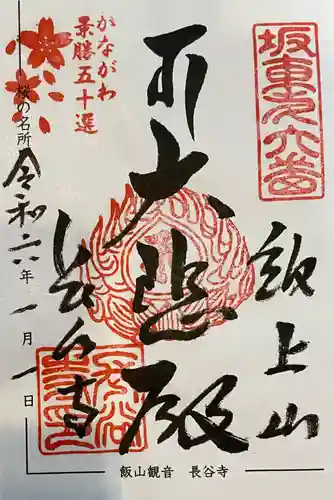 坂東第六番
飯上山
大悲殿
長谷寺
かながわ
景勝五十選
桜の名所
令和六年一月一日
飯山観音 長谷寺